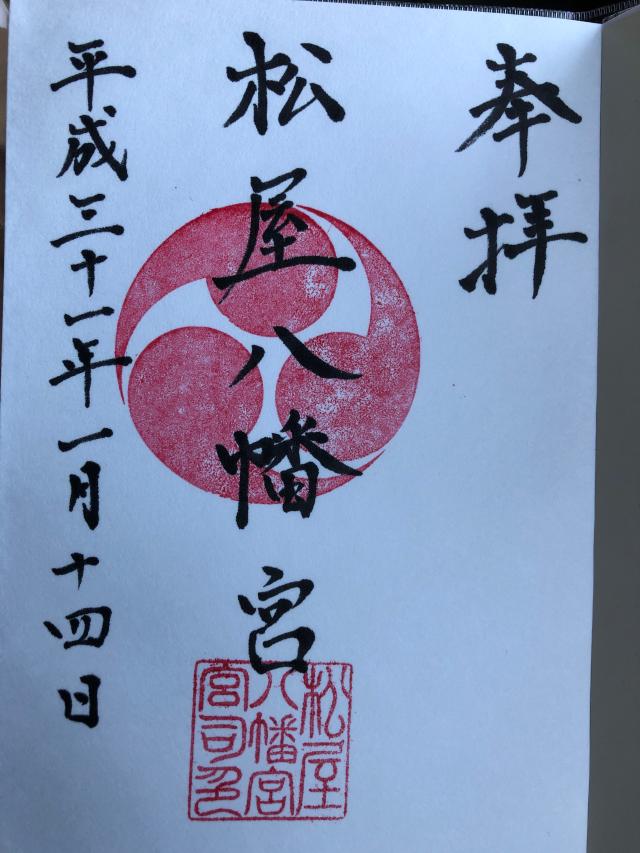 奉拝
松屋八幡宮
平成三十一年一月十四日
松屋
八幡宮
宮司印